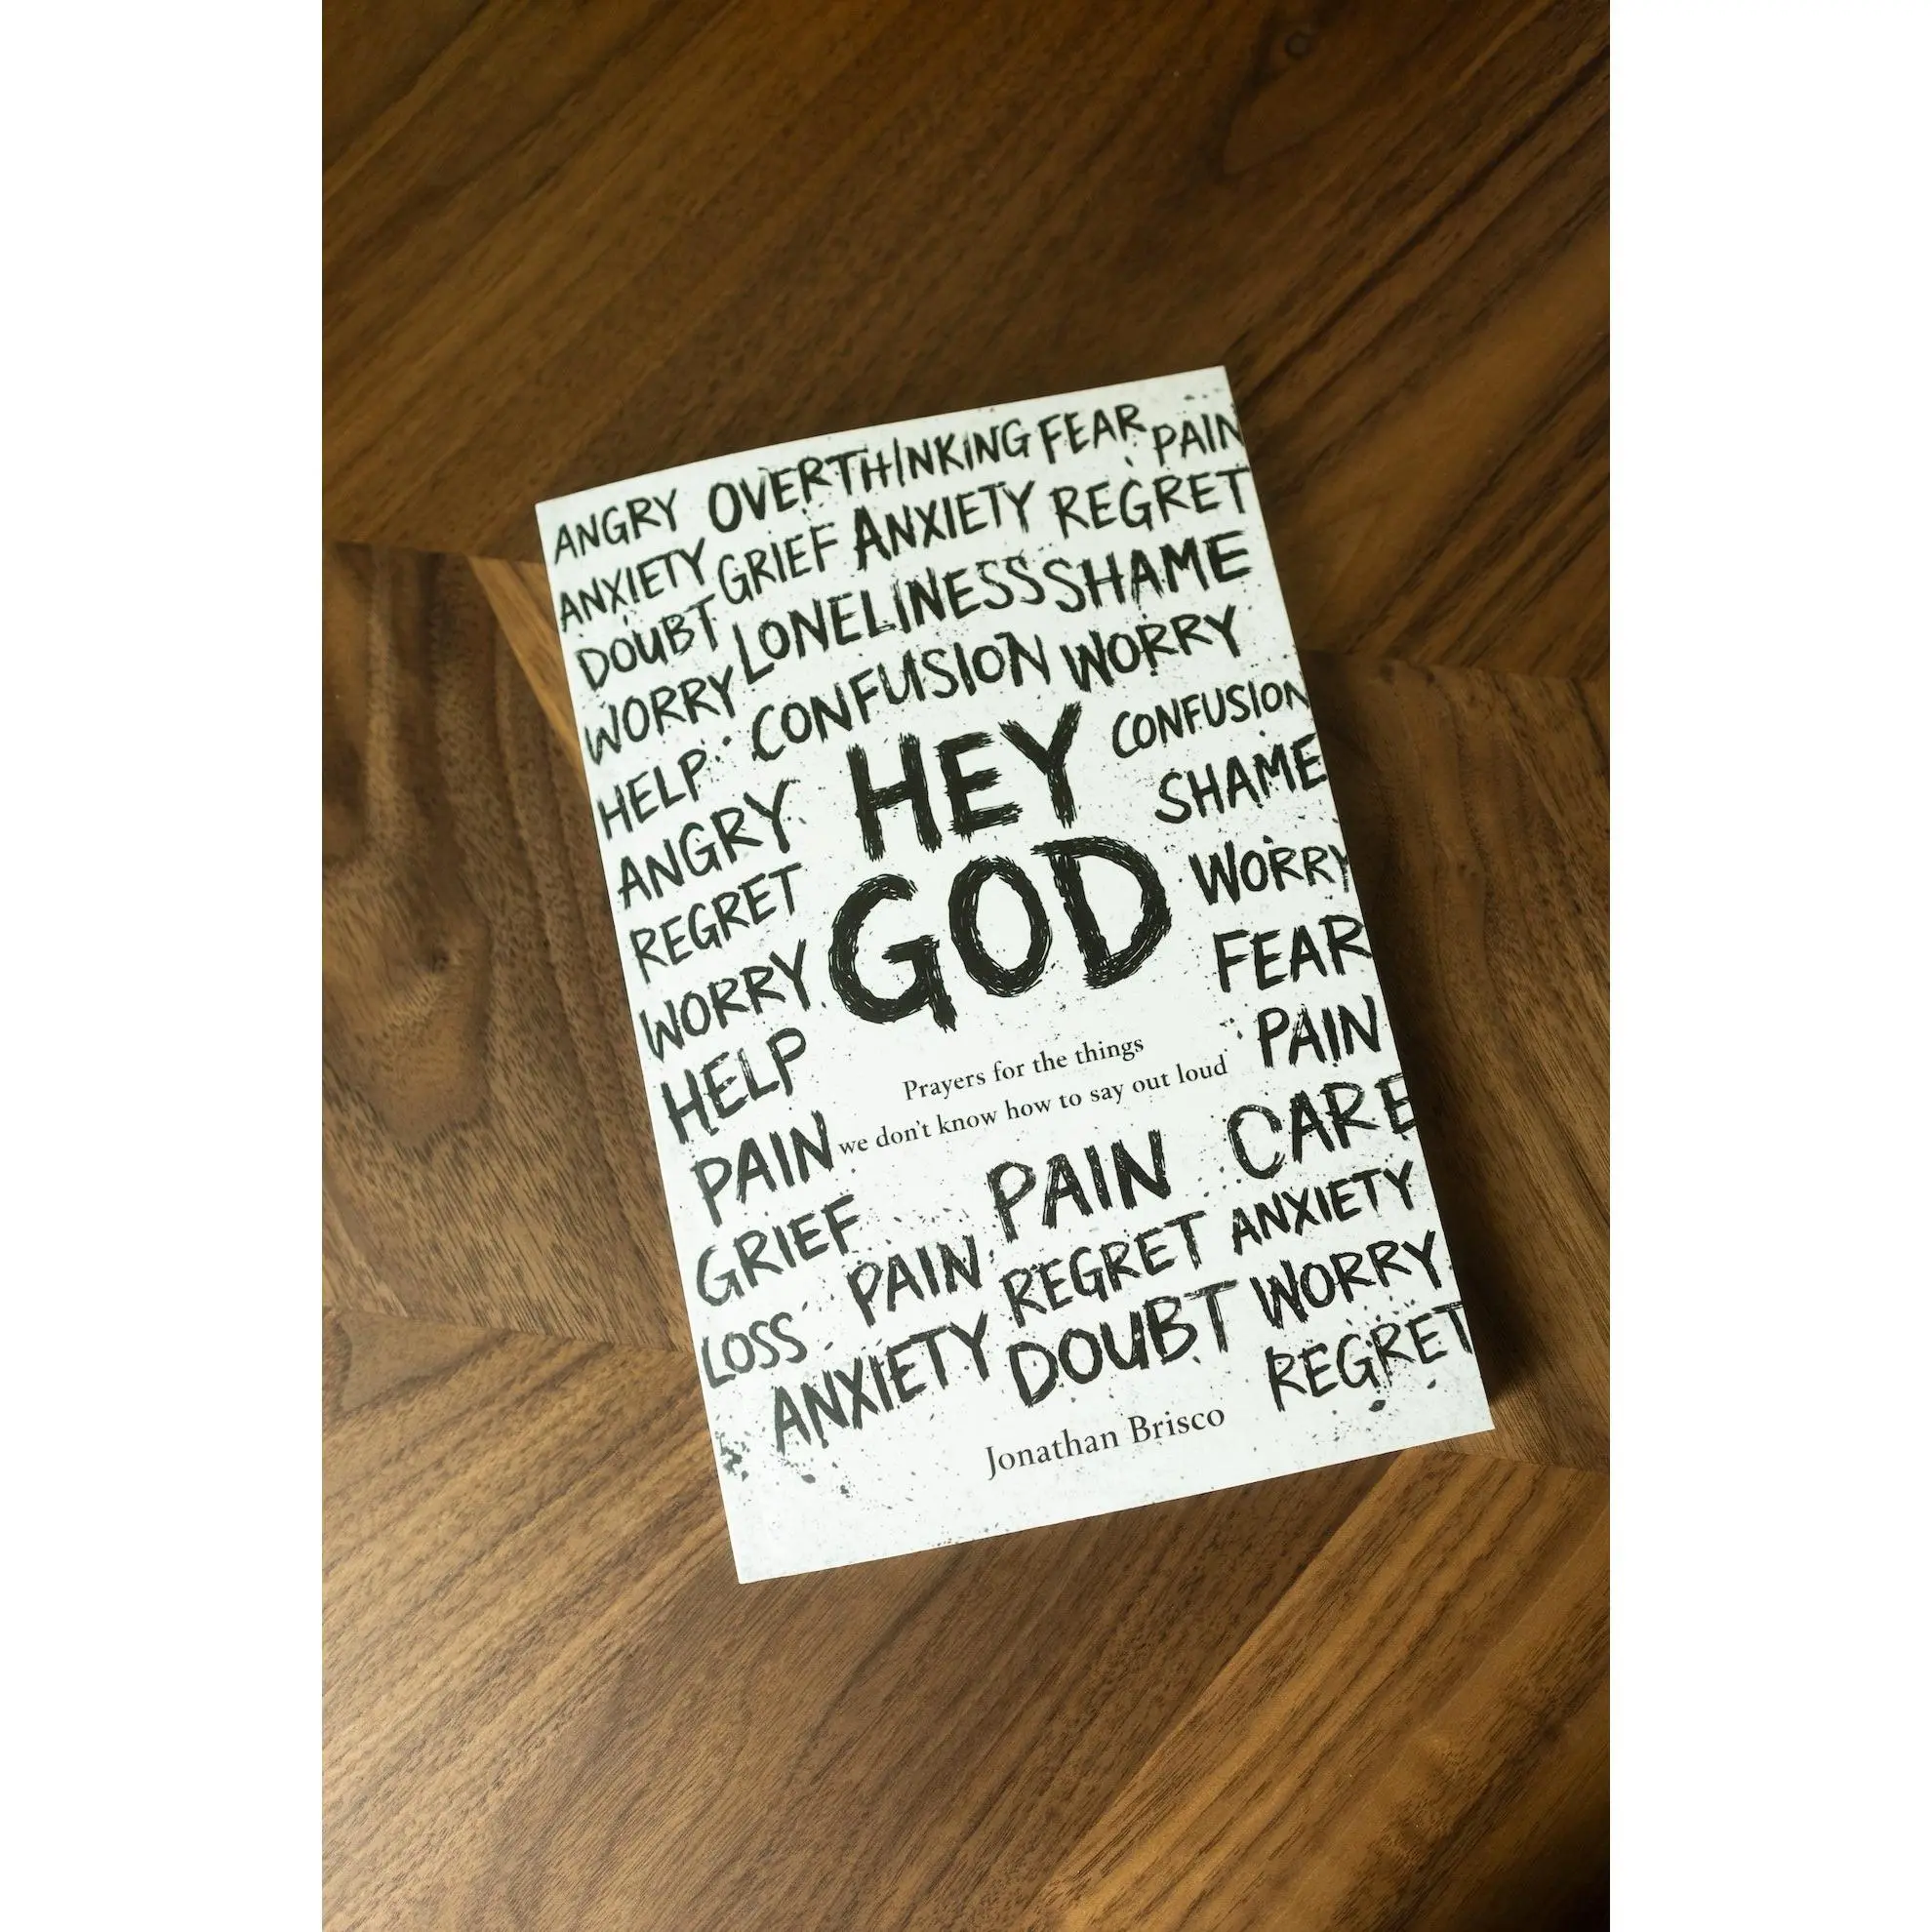 ANGRY OVERTHINKING FEAR PAIN
ANXIETY GRIEF ANXIETY REGRET
DOUBT LONELINESS SHAME
WORRY CONFUSION WORRY
HELP CONFUSION
HEY
SHAME
ANGRY
GOD
WORRY
REGRET
FEAR
WORRY
PAIN
HELP
Prayers for the things
we don't know how to say out loud
PAIN
PAIN CARE
GRIEF
PAIN REGRET ANXIETY
LOSS
ANXIETY DOUBT WORRY
REGRET
Jonathan Brisco